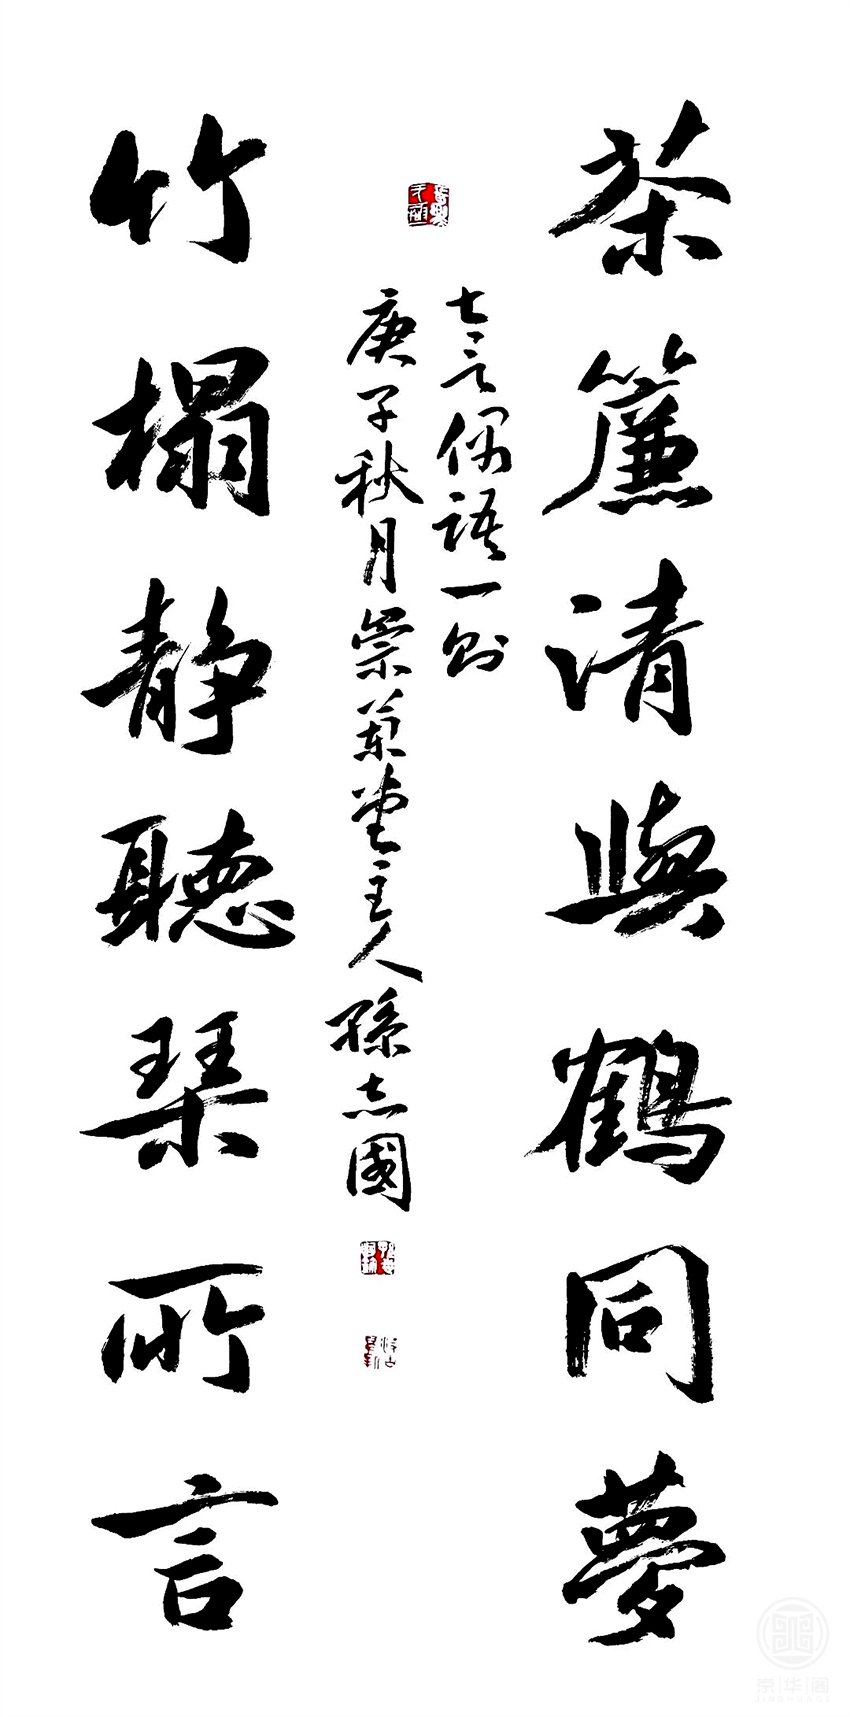 茶簾清與鶴同夢
七言偶語一則
庚子秋月崇蘭堂主人孫志國
竹榻静聽琴所言
京华阁
JINGHUAGE